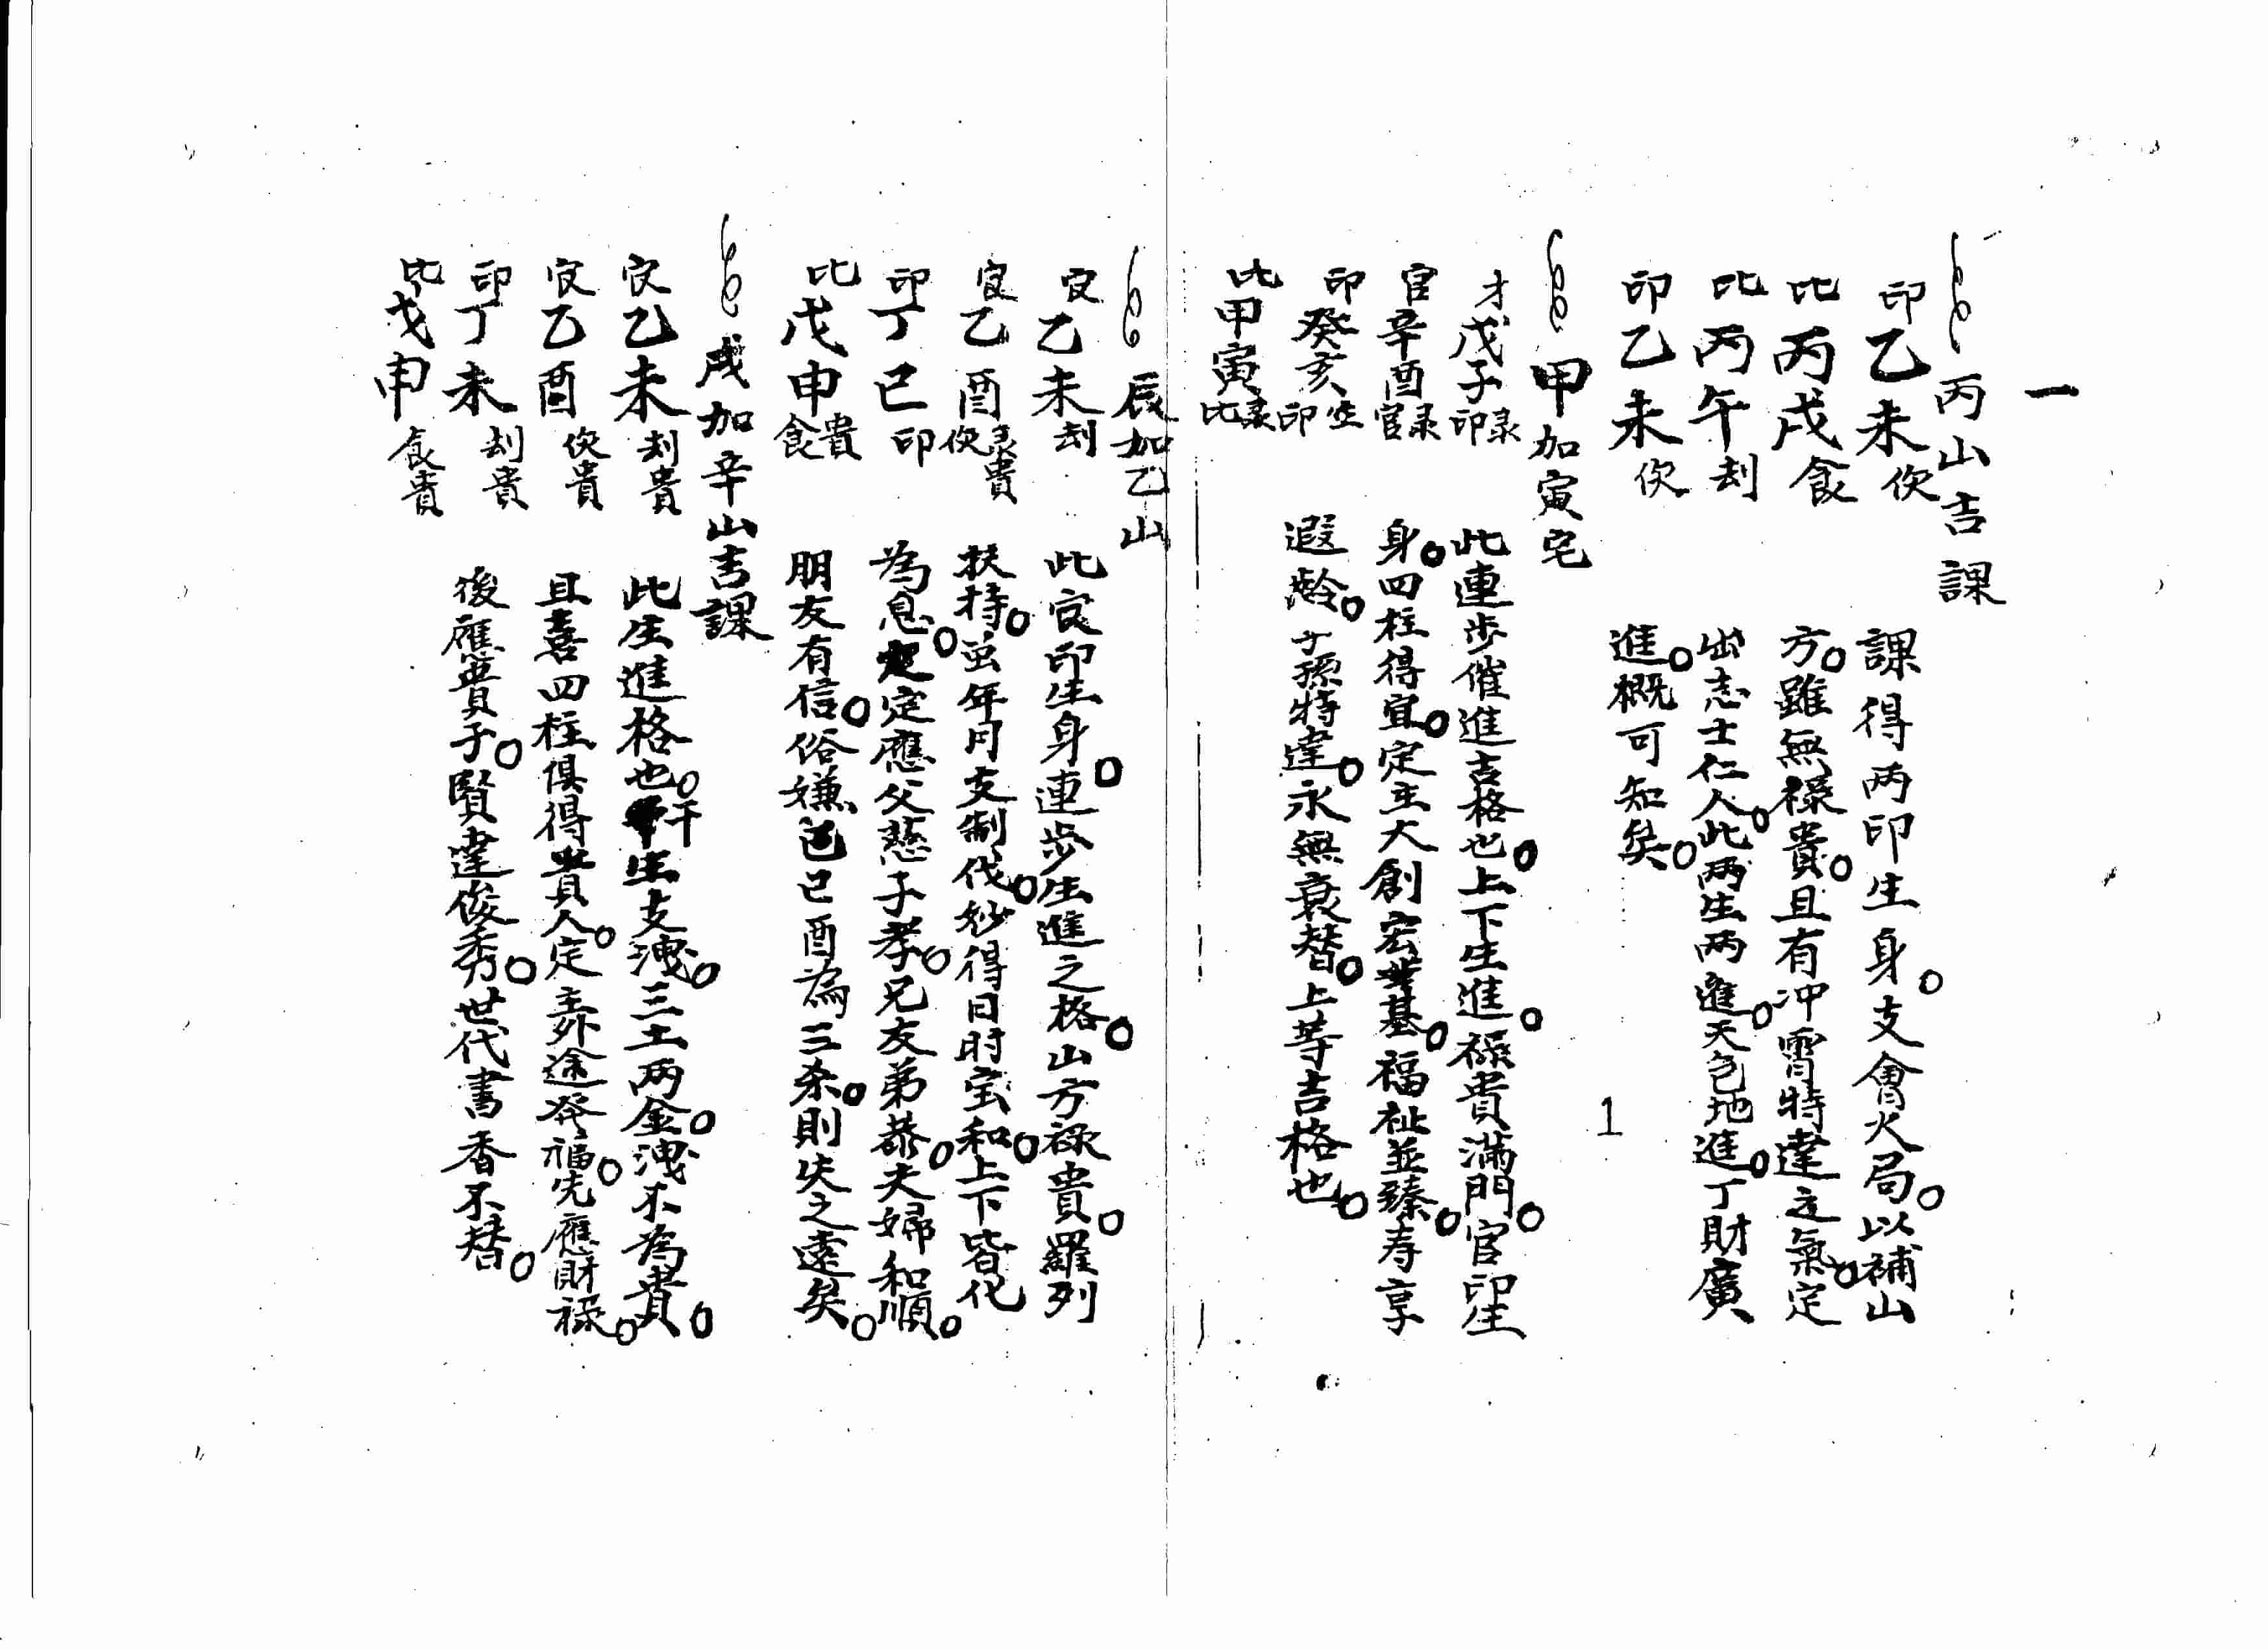 一
丙山吉課
印乙未傷
比丙戌食
比丙午刦
印乙未傷
課得两印生身。支會火局。以補山
方。雖無禄貴。且有冲霄特達之氣。定
出志士仁人。此两生两進。天包地進。丁財廣
進。概可知矣。
1
甲加寅宅
才戊子印彔
官辛酉官彔
印癸亥印生
比甲寅比彔
此連步催進吉格也。上下生進。禄貴滿門。官印生
身。四柱得宜。定主大創宏基。福祉並臻。寿享
遐齡。子孫特達。永無衰替。上等吉格也。
辰加乙山
官乙未刦
官乙酉傷彔貴
印丁巳印
比戊申食貴
此官印生身。連步生進之格。山方禄貴。羅列
扶持。虽年月支制伐。妙得日时宝和。上下皆化
為恩。定應父慈子孝。兄友弟恭。夫婦和順。
朋友有信。俗嫌巳酉為三杀。則失之遠矣。
戌加辛山吉課
官乙未刦貴
官乙酉傷貴
印丁未刦貴
比戊申食貴
此生進格也。干生支洩。三土两金。洩不為貴。
且喜四柱俱得貴人。定主外途發福。先應財禄。
後應貴子。賢達俊秀。世代書香不替。